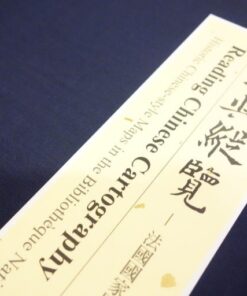 縱覽
— 法國國家
Reading Chinese Cartography
Historic Chinese-style Maps in the Bibliothèque Nati